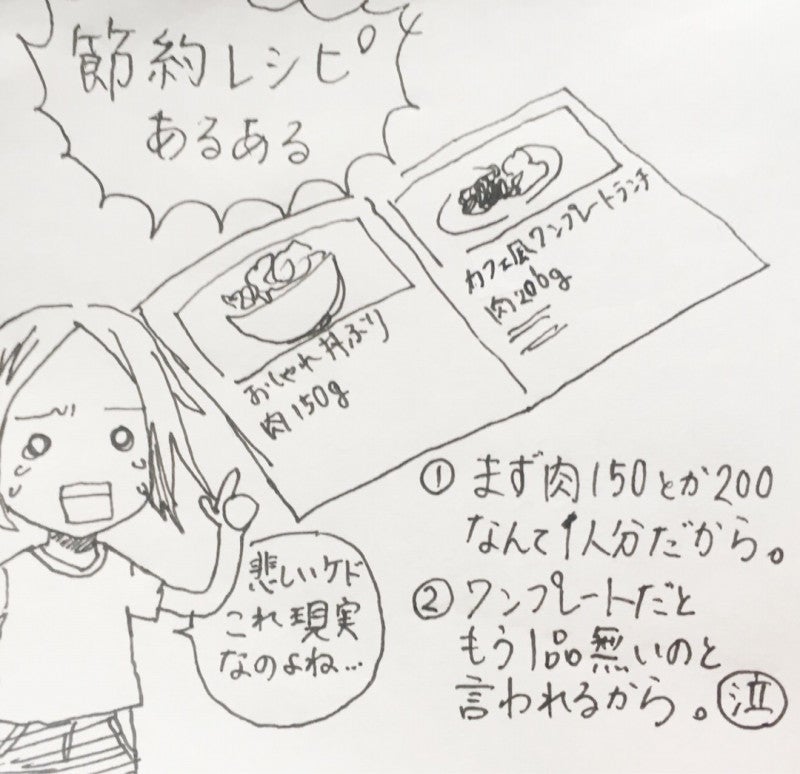 節約レシピ
あるある
カフェ風ワンプレートランチ
肉200g
おしゃれ丼ぶり
肉150g
① まず肉150とか200
なんて1人分だから。
② ワンプレートだと
もう1品無いのと
言われるから。泣
悲しいケド
これ現実
なのよね…